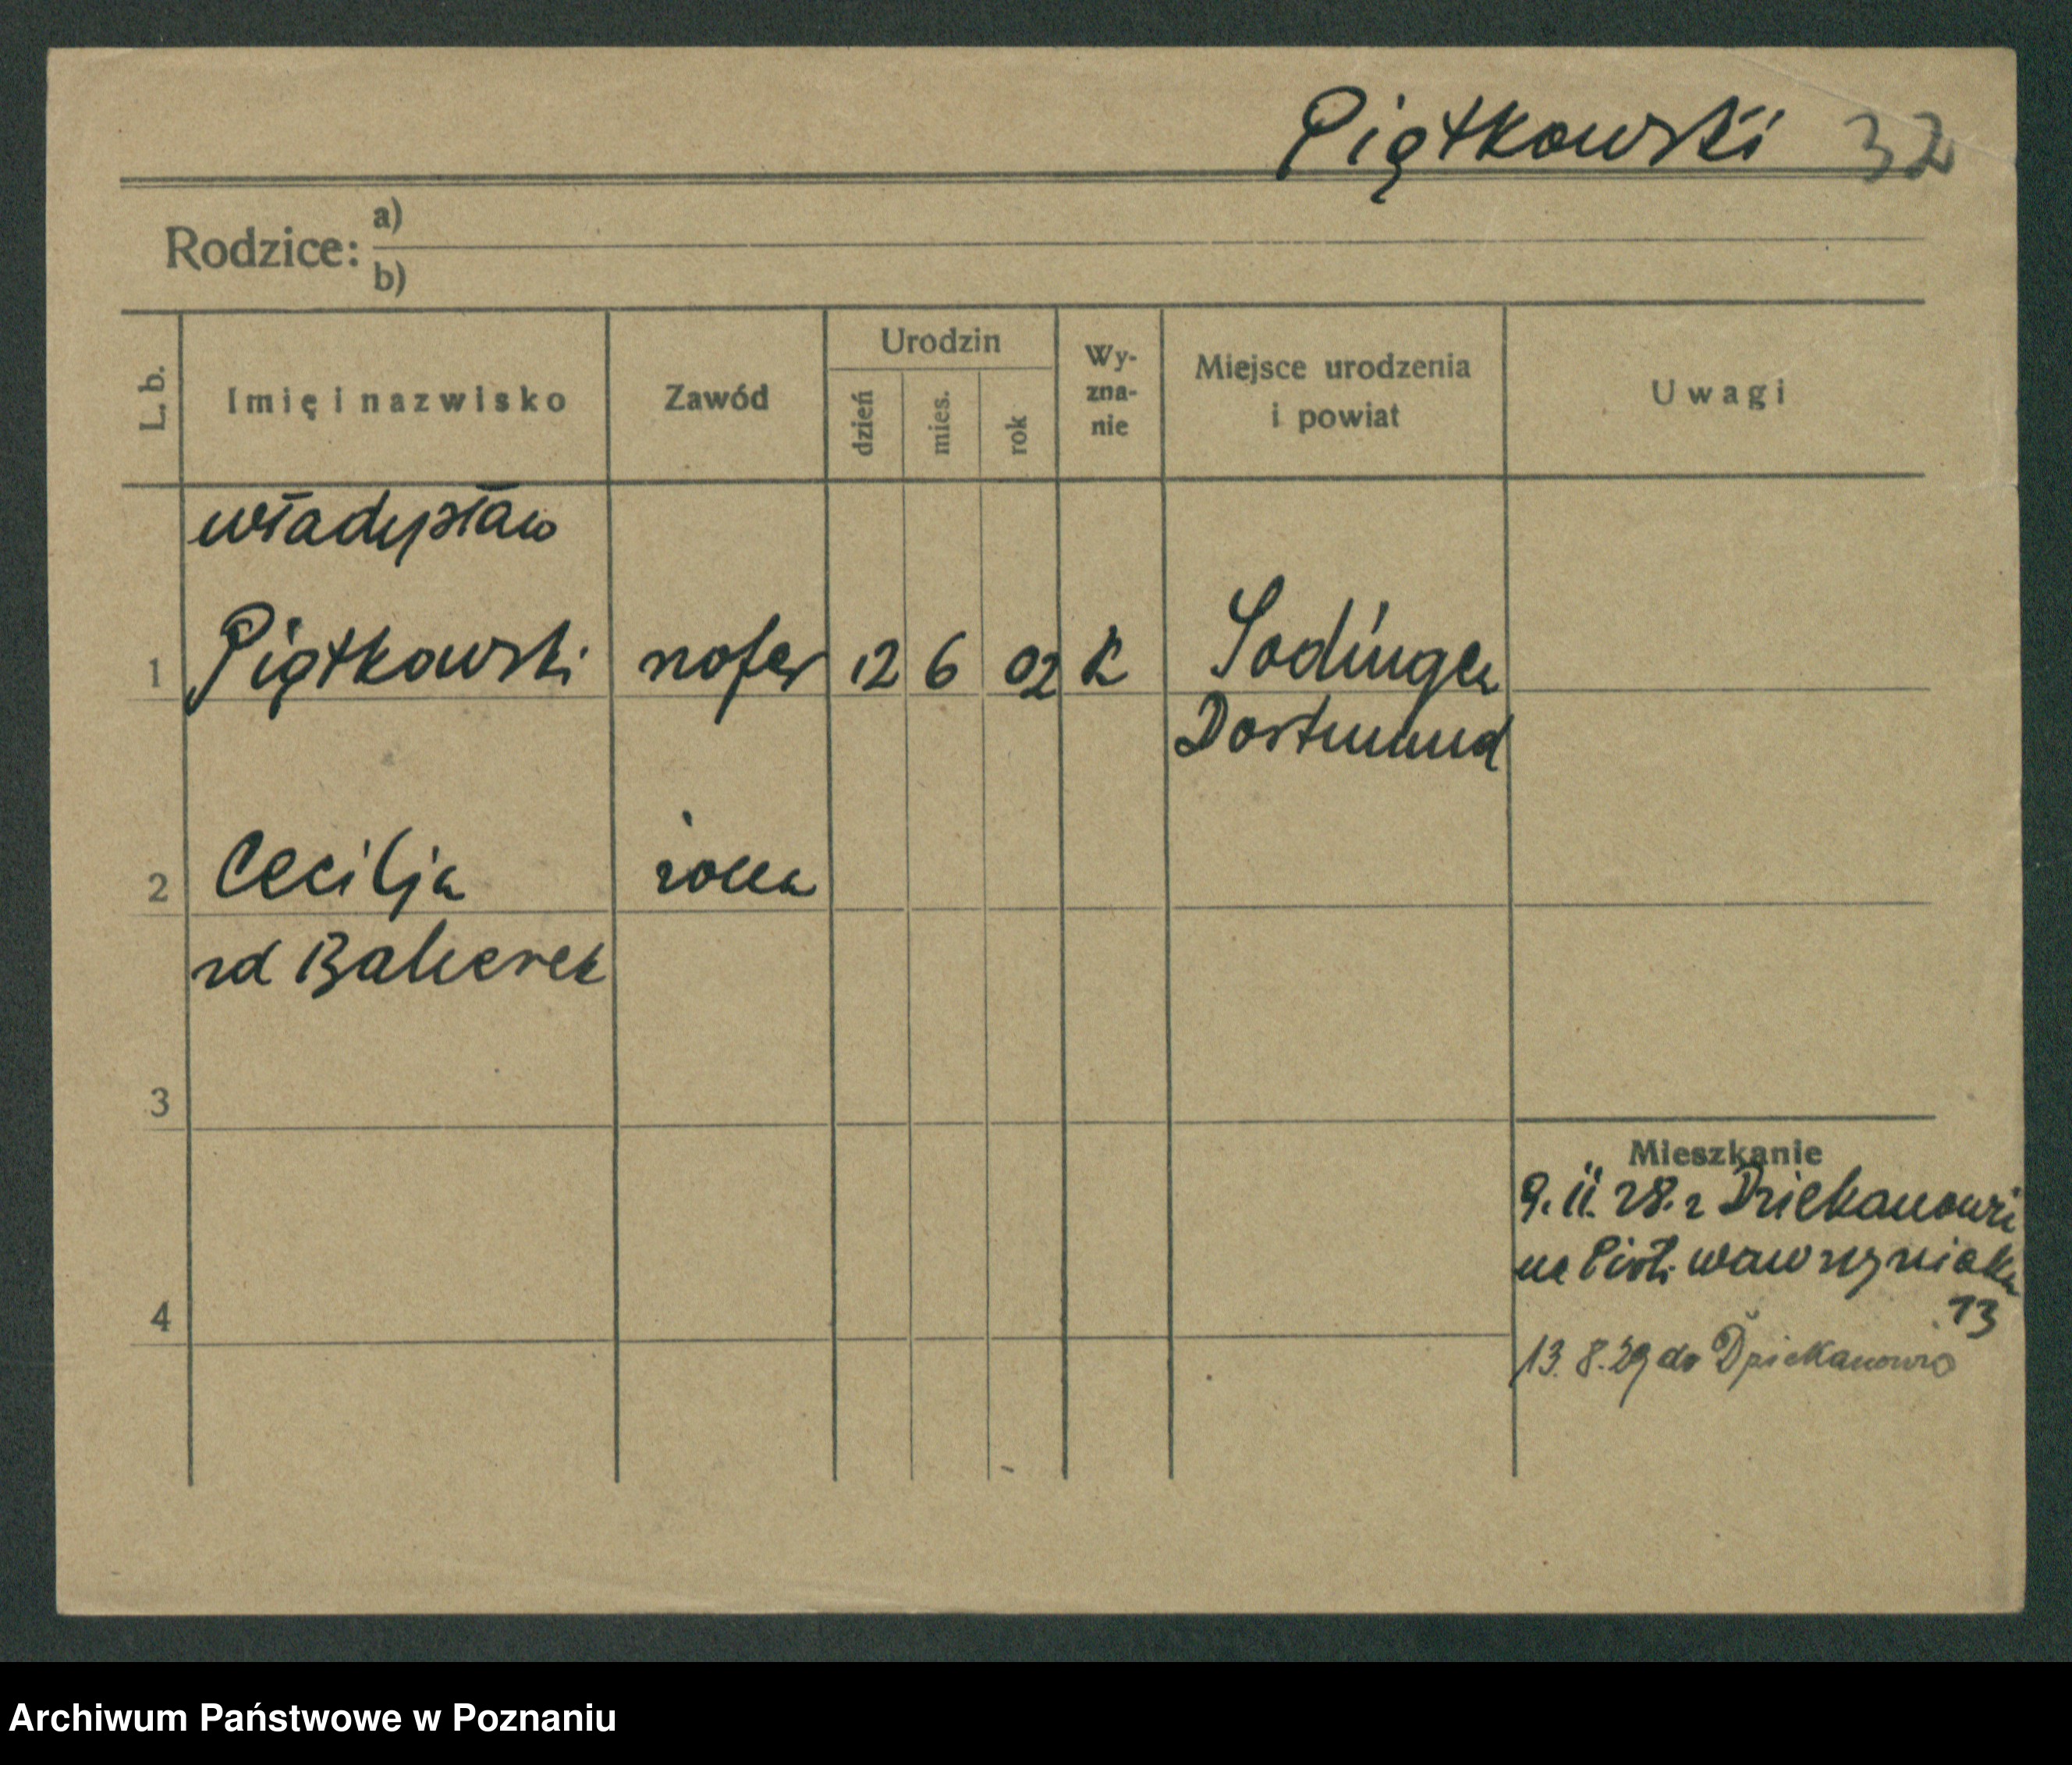 Piątkowski 32
Rodzice: a)
b)
L. b. Imię i nazwisko Zawód Urodzin dzień mies. rok Wy-zna-nie Miejsce urodzenia i powiat Uwagi
Władysław
1 Piątkowski szofer 12 6 02 k Sodingen
Dortmund
2 Cecilja żona
zd
3
Mieszkanie
9.11.28. z Dziekanowic
na Piotr. Wawrzyniaka
13
4
13.8.29 do Dziekanowic
Archiwum Państwowe w Poznaniu